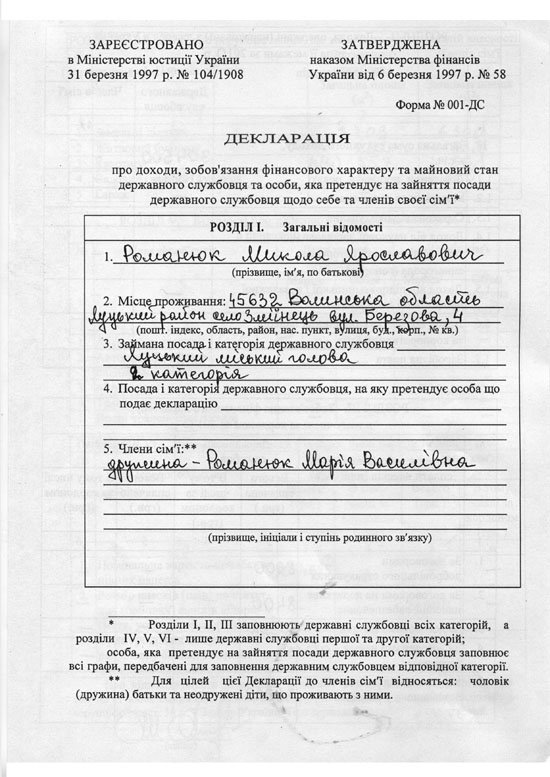 ЗАРЕЄСТРОВАНО
в Міністерстві юстиції України
31 березня 1997 р. № 104/1908
ЗАТВЕРДЖЕНА
наказом Міністерства фінансів
України від 6 березня 1997 р. № 58
Форма № 001-ДС
ДЕКЛАРАЦІЯ
про доходи, зобов'язання фінансового характеру та майновий стан
державного службовця та особи, яка претендує на зайняття посади
державного службовця щодо себе та членів своєї сім'ї*
РОЗДІЛ І. Загальні відомості
1. Романюк Микола Ярославович
(прізвище, ім'я, по батькові)
2. Місце проживання: 45632 Волинська область
Луцький район село Зміїнець вул. Берегова, 4
(пошт. індекс, область, район, нас. пункт, вулиця, буд., корп., № кв.)
3. Займана посада і категорія державного службовця
Луцький міський голова
2 категорія
4. Посада і категорія державного службовця, на яку претендує особа що
подає декларацію
5. Члени сім'ї:**
дружина - Романюк Марія Василівна
(прізвище, ініціали і ступінь родинного зв'язку)
* Розділи І, ІІ, ІІІ заповнюють державні службовці всіх категорій, а
розділи IV, V, VI - лише державні службовці першої та другої категорій;
особа, яка претендує на зайняття посади державного службовця заповнює
всі графи, передбачені для заповнення державним службовцем відповідної категорії.
** Для цілей цієї Декларації до членів сім'ї відносяться: чоловік
(дружина) батьки та неодружені діти, що проживають з ними.